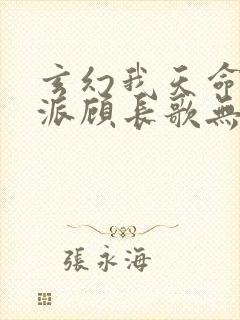 玄幻我天命
派顾长歌無
張永海